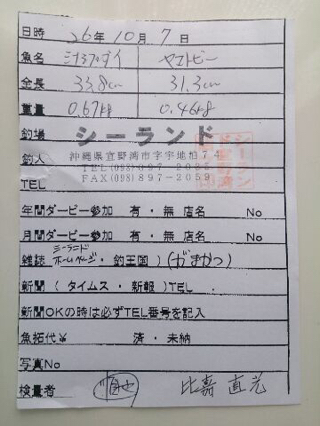 日時 26年10月7日
魚名 ミナミクロダイ ヤマトビー
全長 33.8cm 31.3cm
重量 0.67kg 0.46kg
釣場 シーランド
釣人 沖縄県宜野湾市字宇地泊74
TEL TEL(098)
FAX(098)897-2059
年間ダービー参加 有・無 店名 No
月間ダービー参加 有・無 店名 No
シーランド
雑誌 ホームページ・釣王国)(がまかつ)
新聞(タイムス・新報)TEL .
新聞OKの時は必ずTEL番号を記入
魚拓代¥ 済・未納
写真No
検量者 比嘉 直